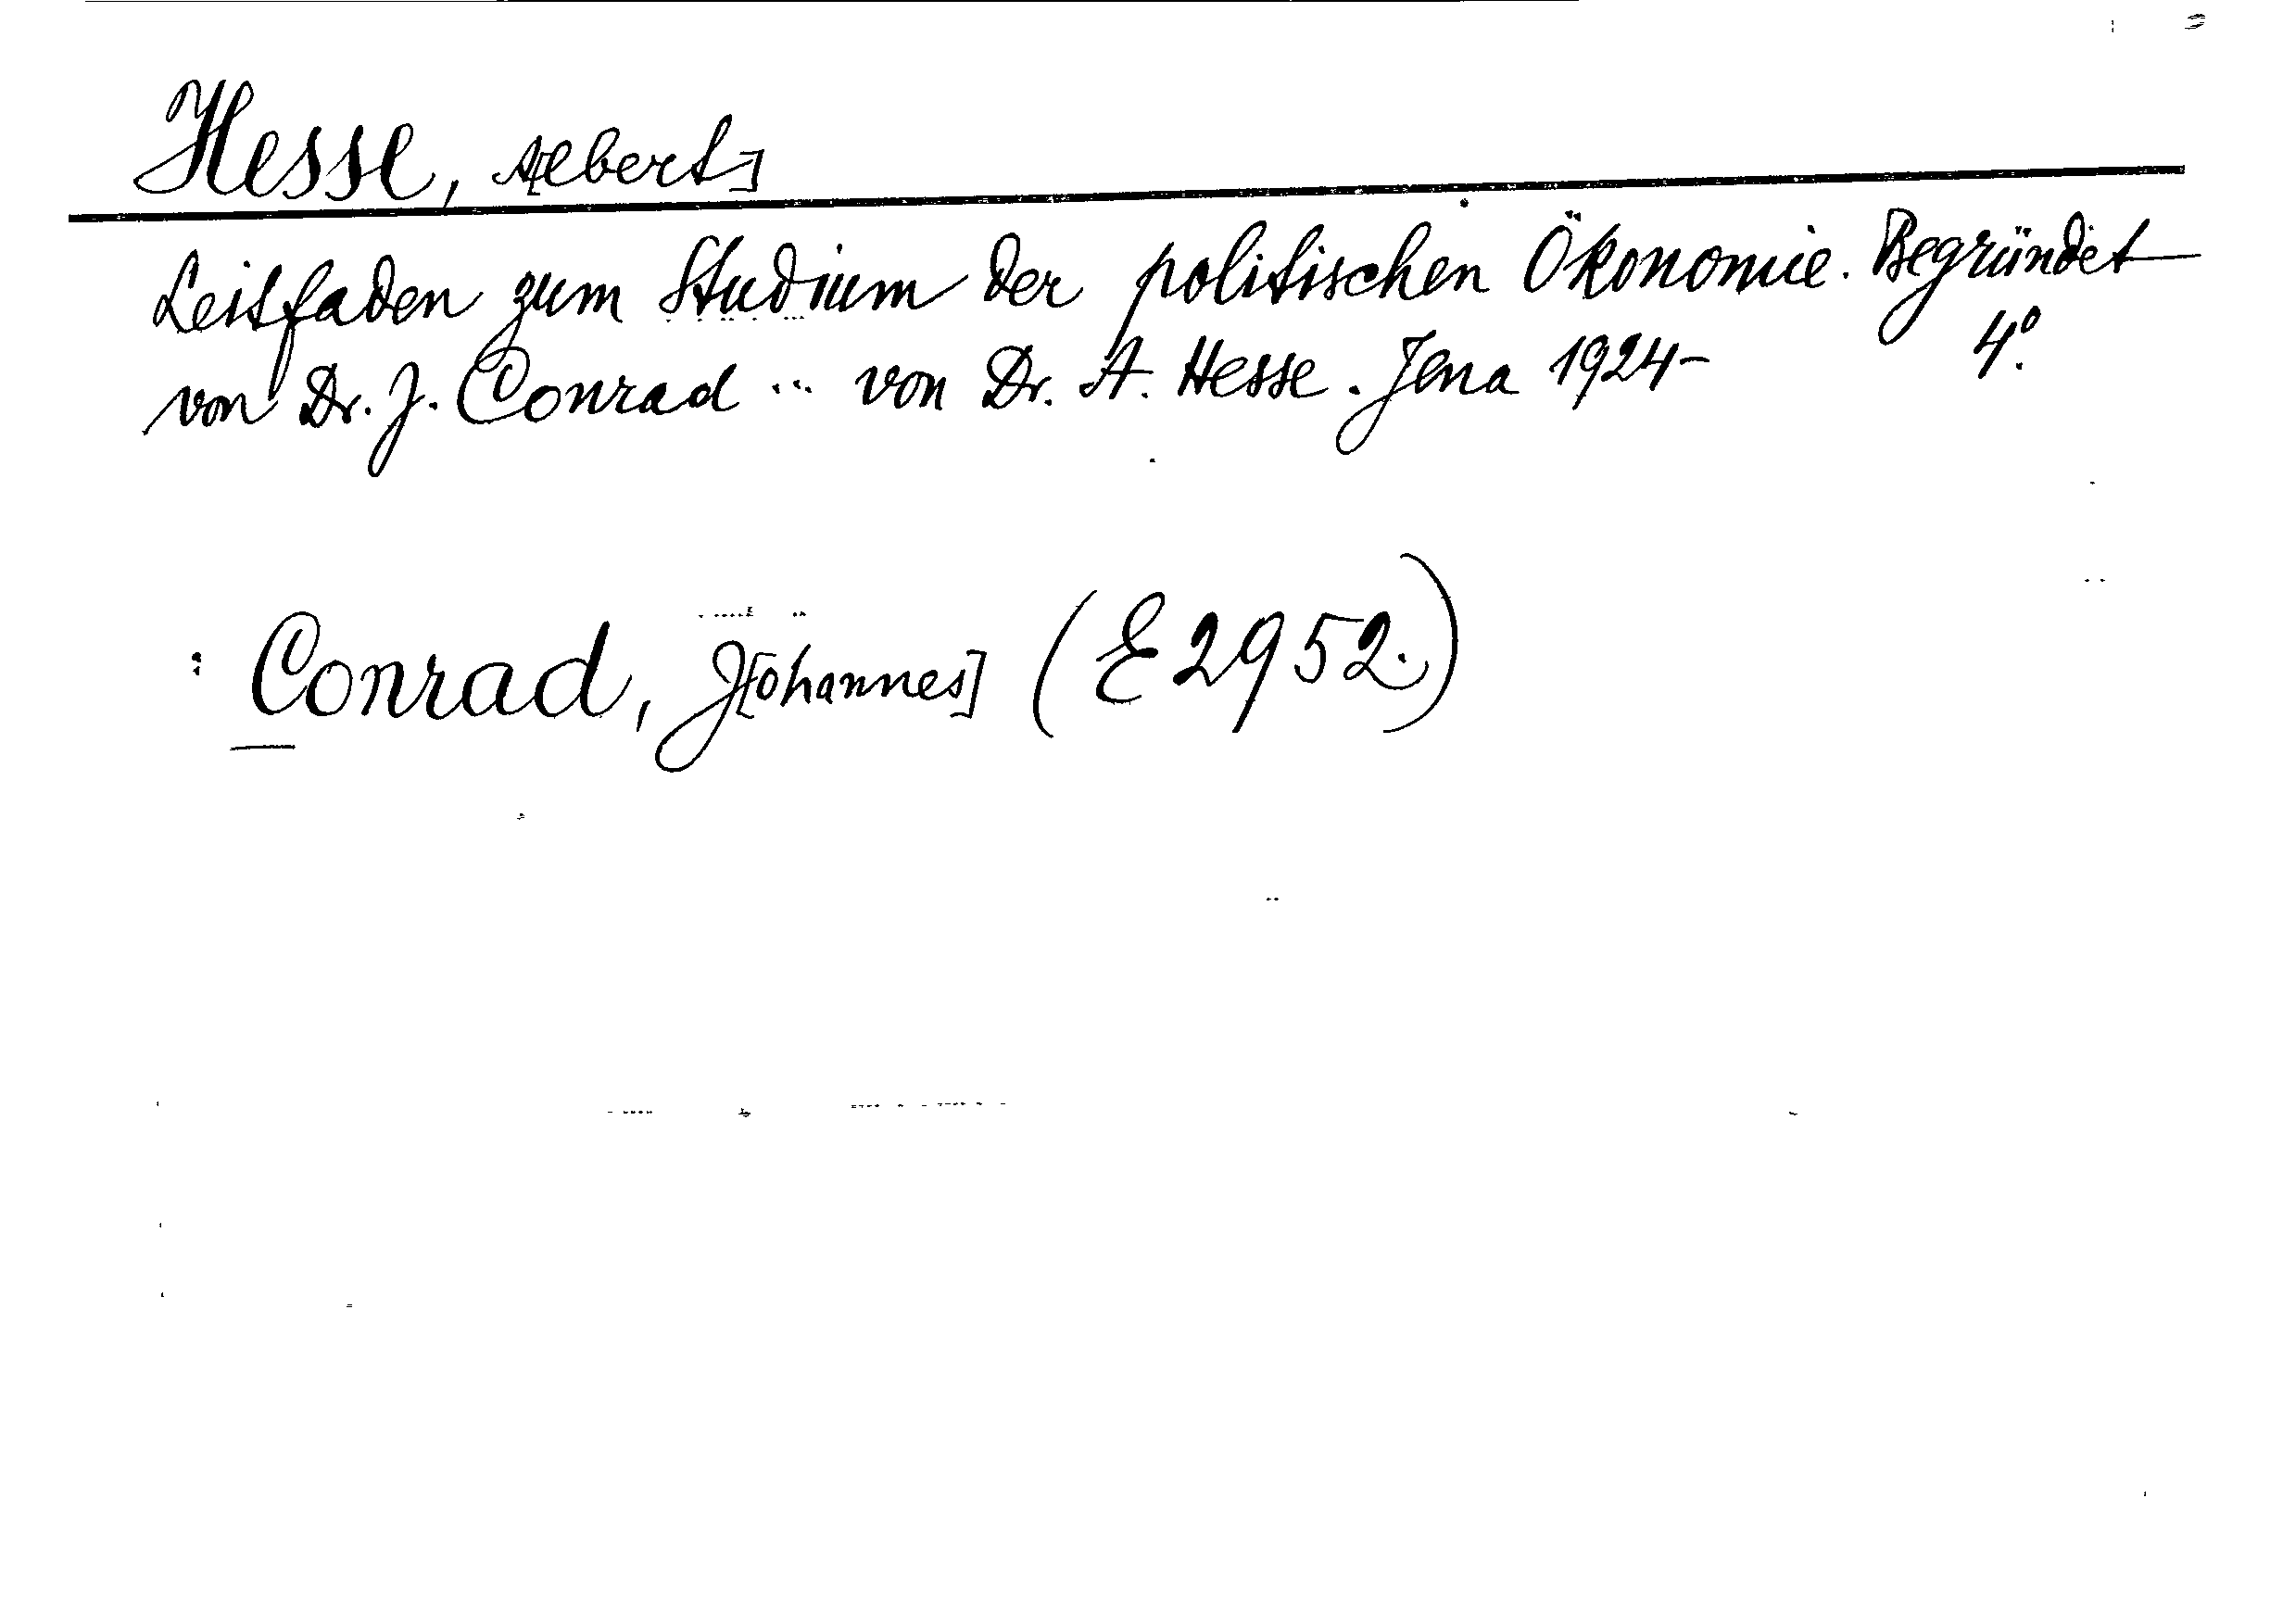 Hesse, A[lbert]
Leitfaden zum Studium der politischen Ökonomie. Begründet
von Dr. J. Conrad ... von Dr. A. Hesse. Jena 1924- 4°.
: Conrad, J[ohannes] (E 2952.)